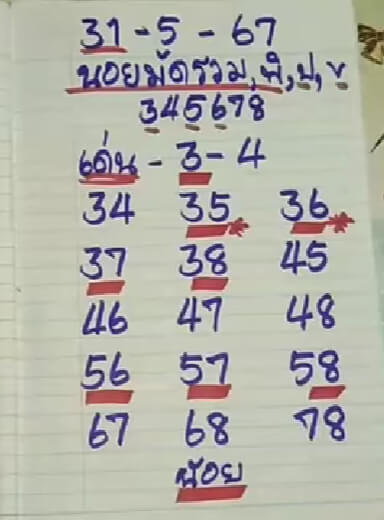 31 - 5 - 67
นอยมัดรวม, พิ, ป, ข
345678
เด่น - 3 - 4
34 35* 36*
37 38 45
46 47 48
56 57 58
67 68 78
น้อย